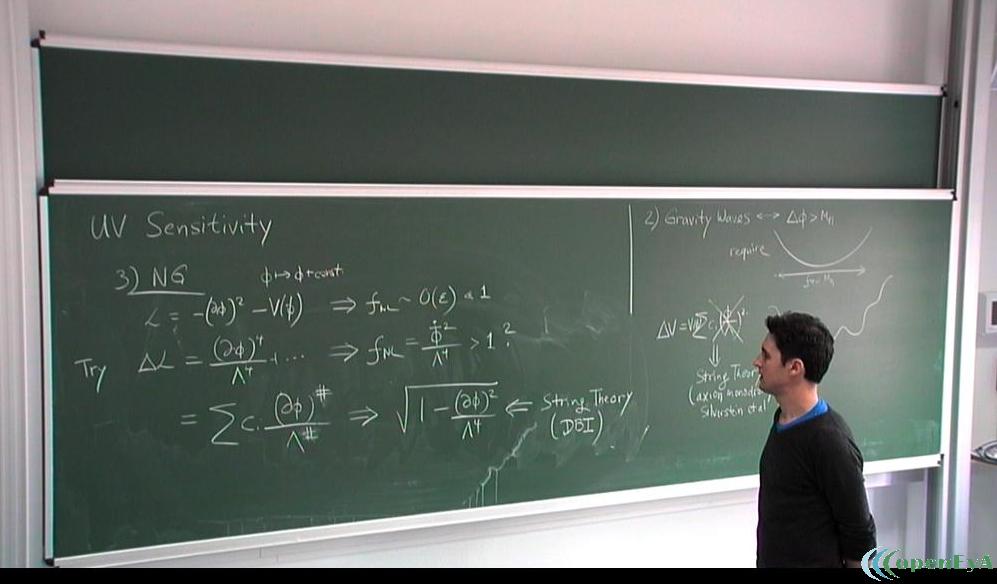 UV Sensitivity
3) NG φ ↦ φ + const
ℒ = -(∂φ)² - V(φ) ⇒ f_NL ~ O(ε) < 1
Try Δℒ = (∂φ)⁴/Λ⁴ + ... ⇒ f_NL = φ̇²/Λ⁴ > 1 ?
= Σ c. (∂φ)^#/Λ^# ⇒ √(1 - (∂φ)²/Λ⁴) ⇐ String Theory
(DBI)
2) Gravity Waves ↔ Δφ > M
require
ΔV =
⇓
String Theory
(axion
Silverstein et al
openEyA